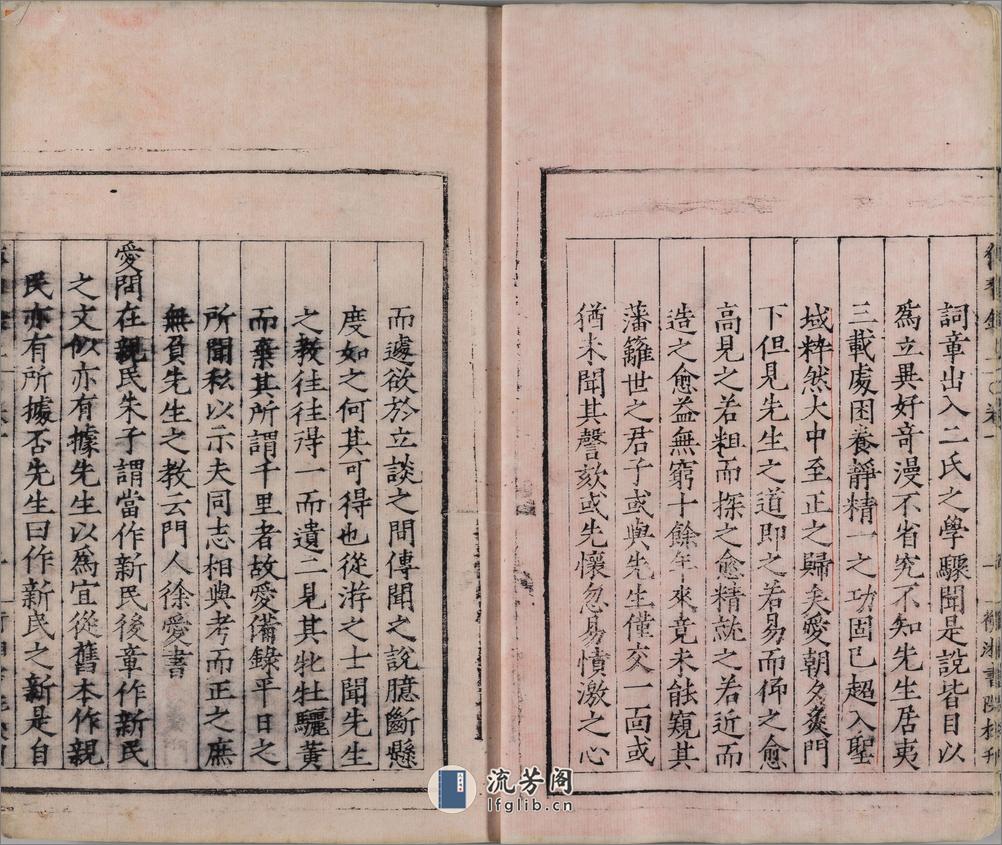 詞章出入二氏之學驟聞是說皆目以
爲立異好竒漫不省究不知先生居夷
三載處困養靜精一之功固已超入聖
域粹然大中至正之歸矣愛朝夕炙門
下但見先生之道即之若易而仰之愈
高見之若粗而探之愈精就之若近而
造之愈益無窮十餘年來竟未能窺其
藩籬世之君子或與先生僅交一面或
猶未聞其謦欬或先懷忽易憤激之心
而遽欲於立談之間傳聞之說臆斷懸
度如之何其可得也從游之士聞先生
之教徃徃得一而遺二見其牝牡驪黃
而棄其所謂千里者故愛備錄平日之
所聞私以示夫同志相與考而正之庶
無負先生之教云門人徐愛書
愛問在親民朱子謂當作新民後章作新民
之文似亦有據先生以爲宜從舊本作親
民亦有所據否先生曰作新民之新是自
流芳阁
lfglib.cn